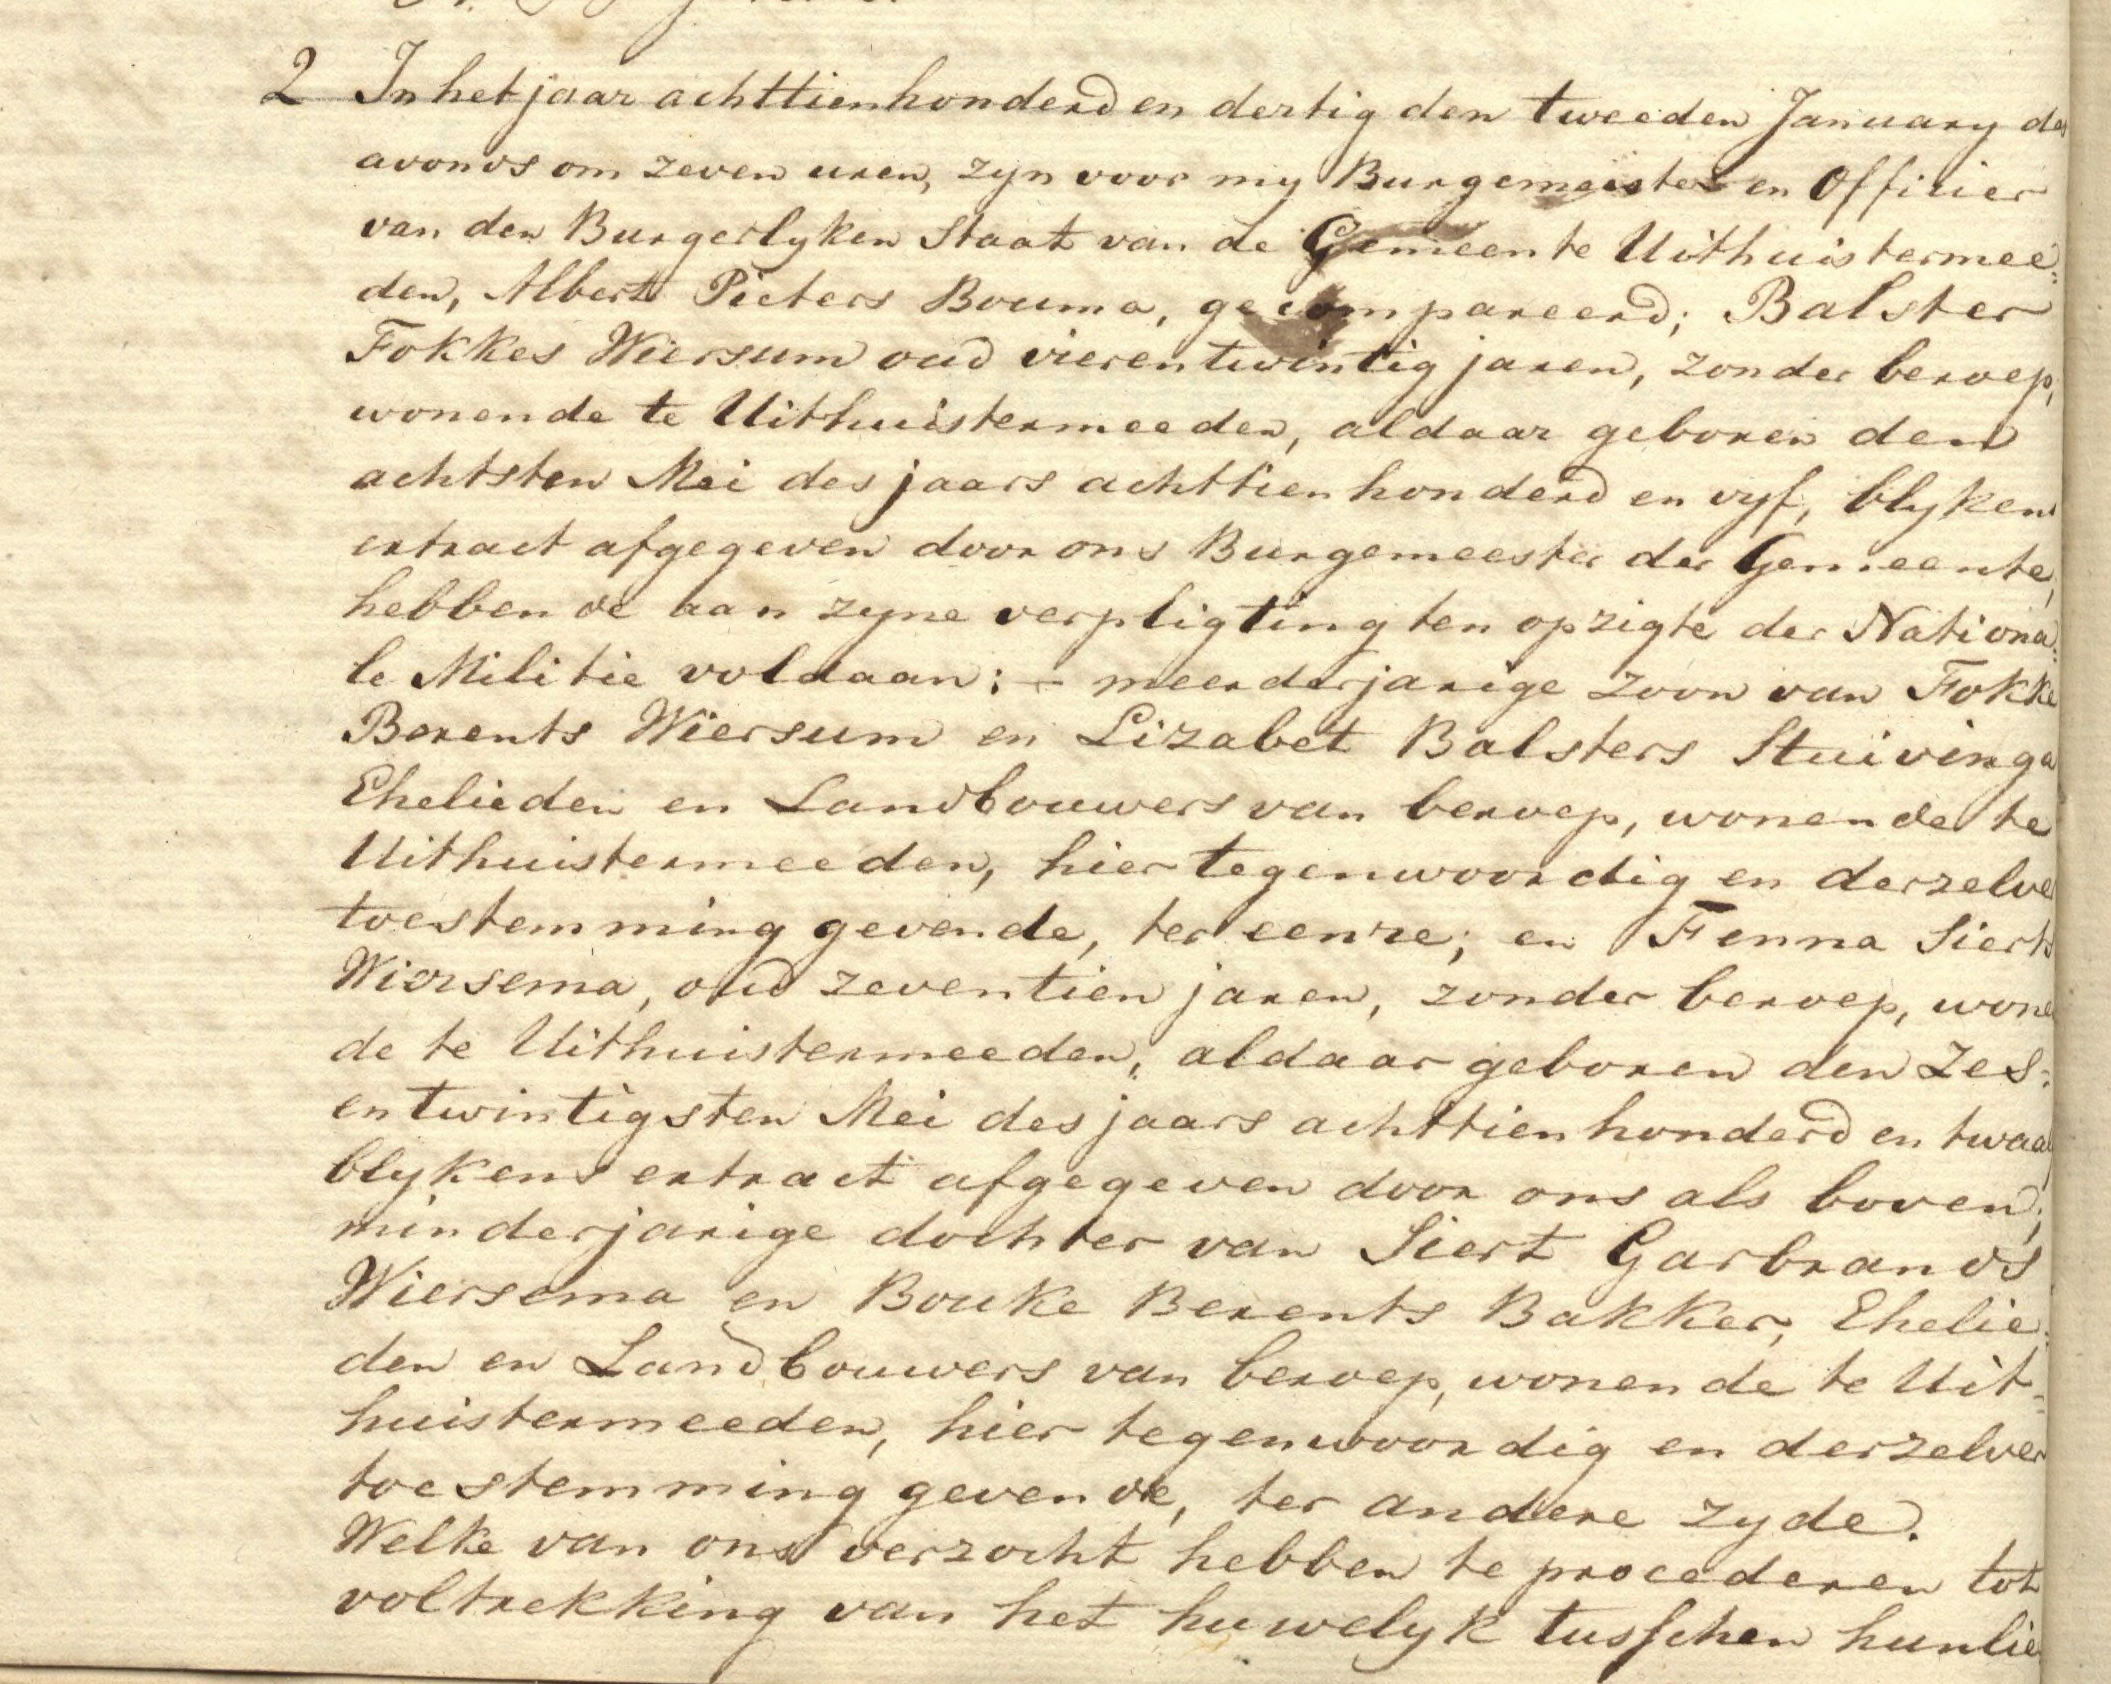 2 In het jaar achttienhonderd en dertig den tweeden January des
avonds om zeven uren, zyn voor my Burgemeister en Officier
van den Burgerlyken Staat van de Gemeente Uithuistermee:
den, Albert Pieters Bouma, gecompareerd; Balster
Fokkes Wiersum oud vierentwintig jaren, zonder beroep,
wonende te Uithuistermeeden, aldaar geboren den
achtsten Mei des jaars achttienhonderd en vyf, blykens
extract afgegeven door ons Burgemeester der Gemeente,
hebbende aan zyne verpligting ten opzigte der Nationa:
le Militie voldaan; - meerderjarige zoon van Fokke
Berents Wiersum en Lizabet Balsters Stuivinga
Ehelieden en Landbouwers van beroep, wonende te
Uithuistermeeden, hier tegenwoordig en derzelve
toestemming gevende, ter eenre; en Fenna Sierts
Wiersema, oud zeventien jaren, zonder beroep, wonen
de te Uithuistermeeden, aldaar geboren den Zes:
entwintigsten Mei des jaars achttienhonderd en twaalf
blykens extract afgegeven door ons als boven;
minderjarige dochter van Siert Garbrands
Wiersema en Bouke Berents Bakker, Ehelie:
den en Landbouwers van beroep, wonende te Uit:
huistermeeden, hier tegenwoordig en derzelver
toestemming gevende, ter andere zyde.
Welke van ons verzocht hebben te procederen tot
voltrekking van het huwelyk tusschen hunlie